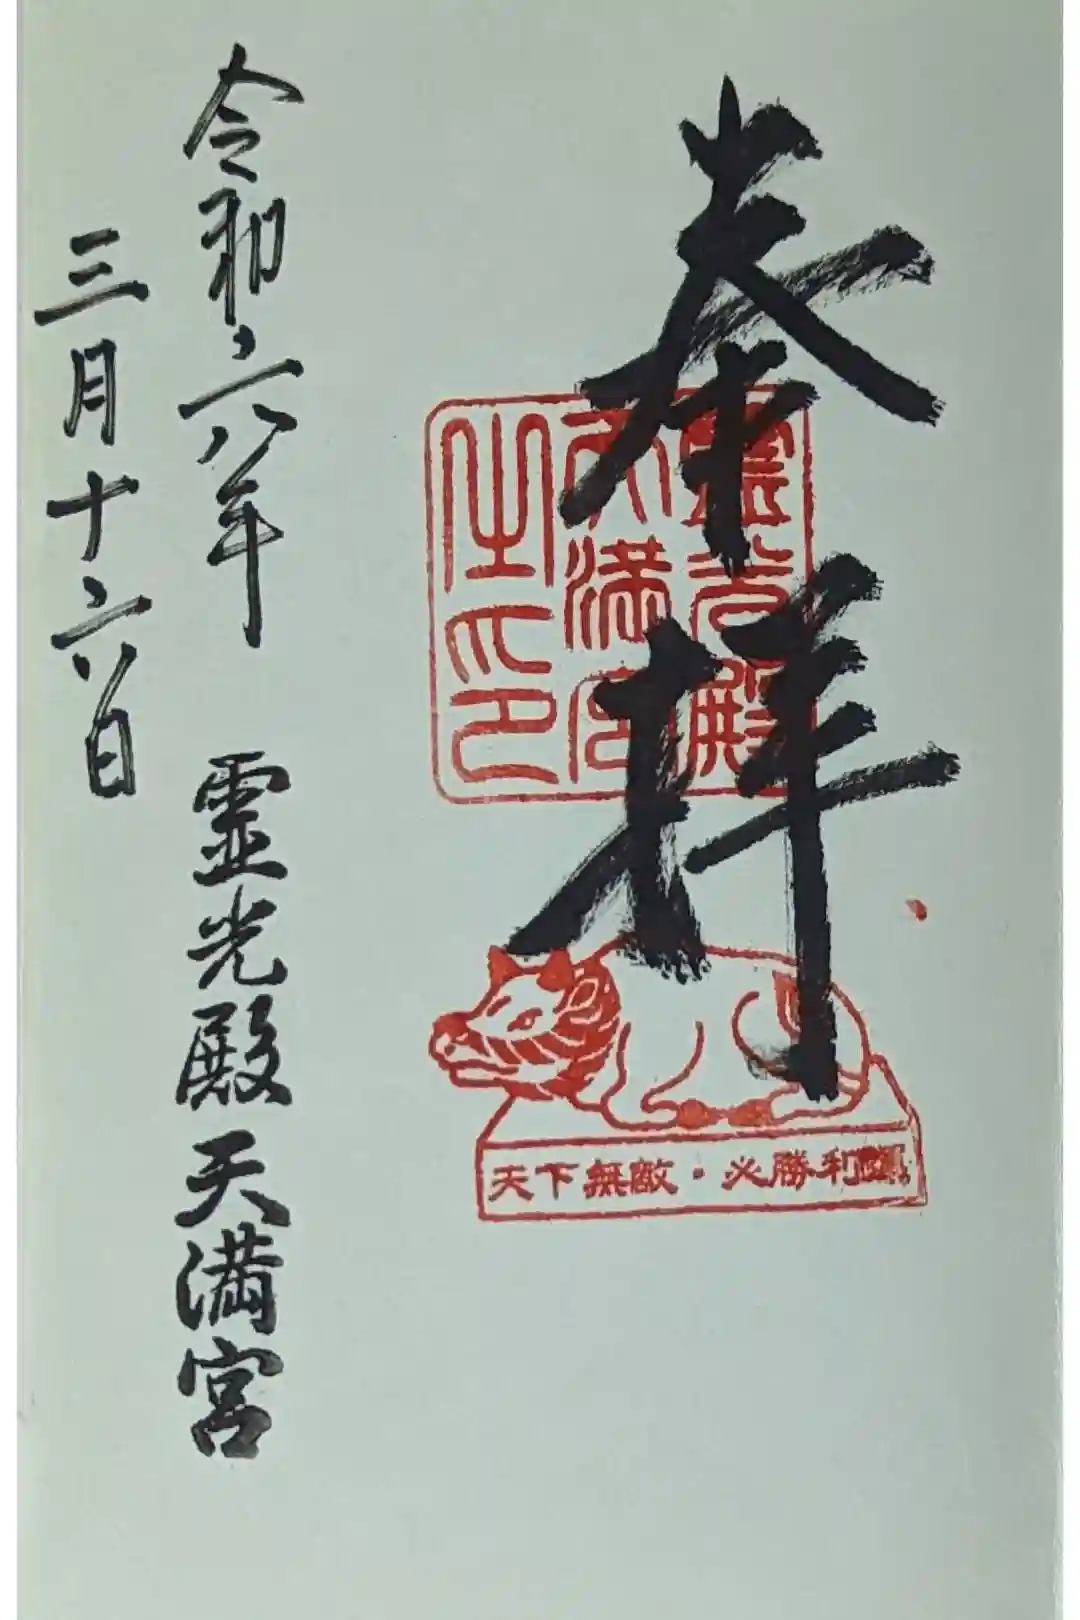 奉拝
霊光殿
天満宮
之印
天下無敵・必勝利運
令和六年 霊光殿天満宮
三月十六日